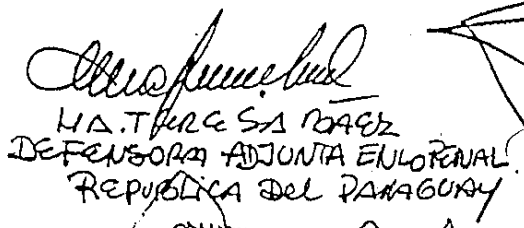 MA. TERESA BAEZ
DEFENSORA ADJUNTA EN LO PENAL
REPUBLICA DEL PARAGUAY